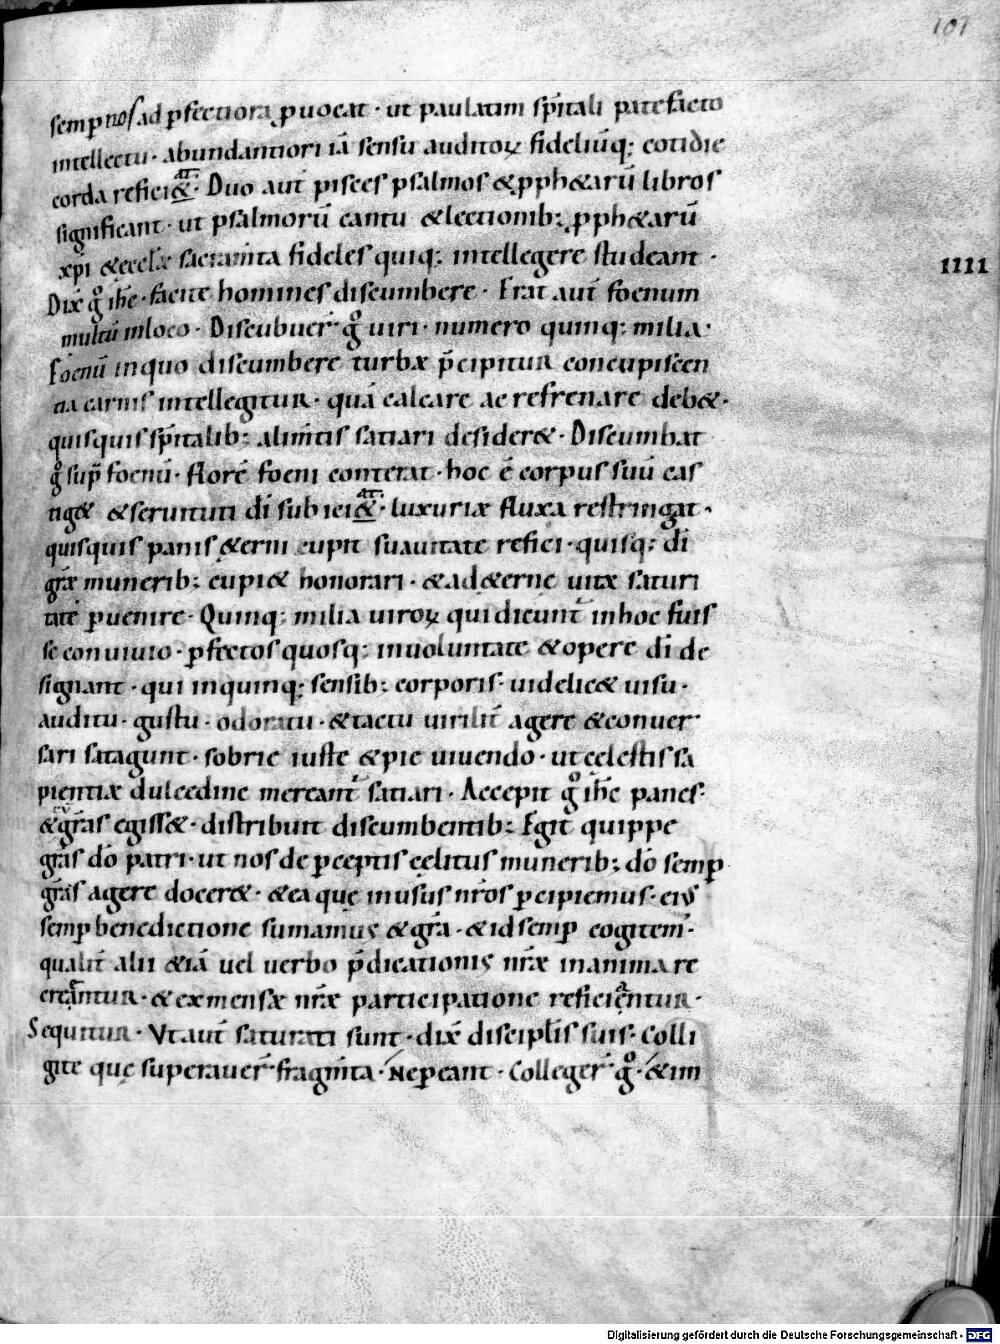 101
semp nos ad ꝑfectiora ꝓuocat · ut paulatim sp̄itali patefacto
intellectu · abundantiori iā sensu auditoꝝ fideliūq; cotidie
corda refici&at · Duo aut̄ pisces psalmos &ꝓph&arū libros
significant · ut psalmorū cantu &lectionib; ꝓph&arū
xp̄i &eccl̄æ sacram̄ta fideles quiq; intellegere studeant ·
IIII
Dix̄ gͦ ih̄c · facite homines discumbere · Erat aut̄ foenum
multū inloco · Discubuer̄ gͦ uiri · numero quinq; milia ·
Foenū inquo discumbere turbæ p̄cipitur concupiscen
tia carnis intellegitur · quā calcare ac refrenare deb& ·
quisquis sp̄italib; alim̄tis satiari desider& · Discumbat
gͦ sup̄ foenū · florē foeni conterat · hoc ē corpus suū cas
tig& &seruituti dī subici&at · luxuriæ fluxa restringat ·
quisquis panis &erni cupit suauitate refici · quisq; dī
gr̄æ munerib; cupi& honorari · &ad&ernę uitæ saturi
tatē ꝑuenire · Quinq; milia uiroꝝ qui dicunt̄ inhoc fuis
se conuiuio · ꝑfectos quosq; inuoluntate &opere dī de
signant · qui inquinq; sensib; corporis · uidelic& uisu ·
auditu · gustu · odoratu · &tactu uirilit̄ agere &conuer
sari satagunt · sobrie iuste &pie uiuendo · ut cęlestis sa
pientiæ dulcedine mereant̄ satiari · Accepit gͦ ih̄c panes ·
&cū gr̄as egiss& · distribuit discumbentib; Egit quippe
gr̄as dō patri · ut nos de ꝑceptis cęlitus munerib; dō semꝑ
gr̄as agere docer& · &ea quę inusus nr̄os ꝑcipiemus · eiꝰ
semꝑ benedictione sumamus &gr̄a · &id semꝑ cogitem̄ ·
qualit̄ alii &iā uel uerbo p̄dicationis nr̄æ inanima re
creantur · &exmensæ nr̄æ participatione reficiantur ·
Sequitur · Vt aut̄ saturati sunt · dix̄ discipl̄is suis · Colli
gite quę superauer̄ fragm̄ta · Ne ꝑeant · Colleger̄ gͦ · &im
Digitalisierung gefördert durch die Deutsche Forschungsgemeinschaft - DFG